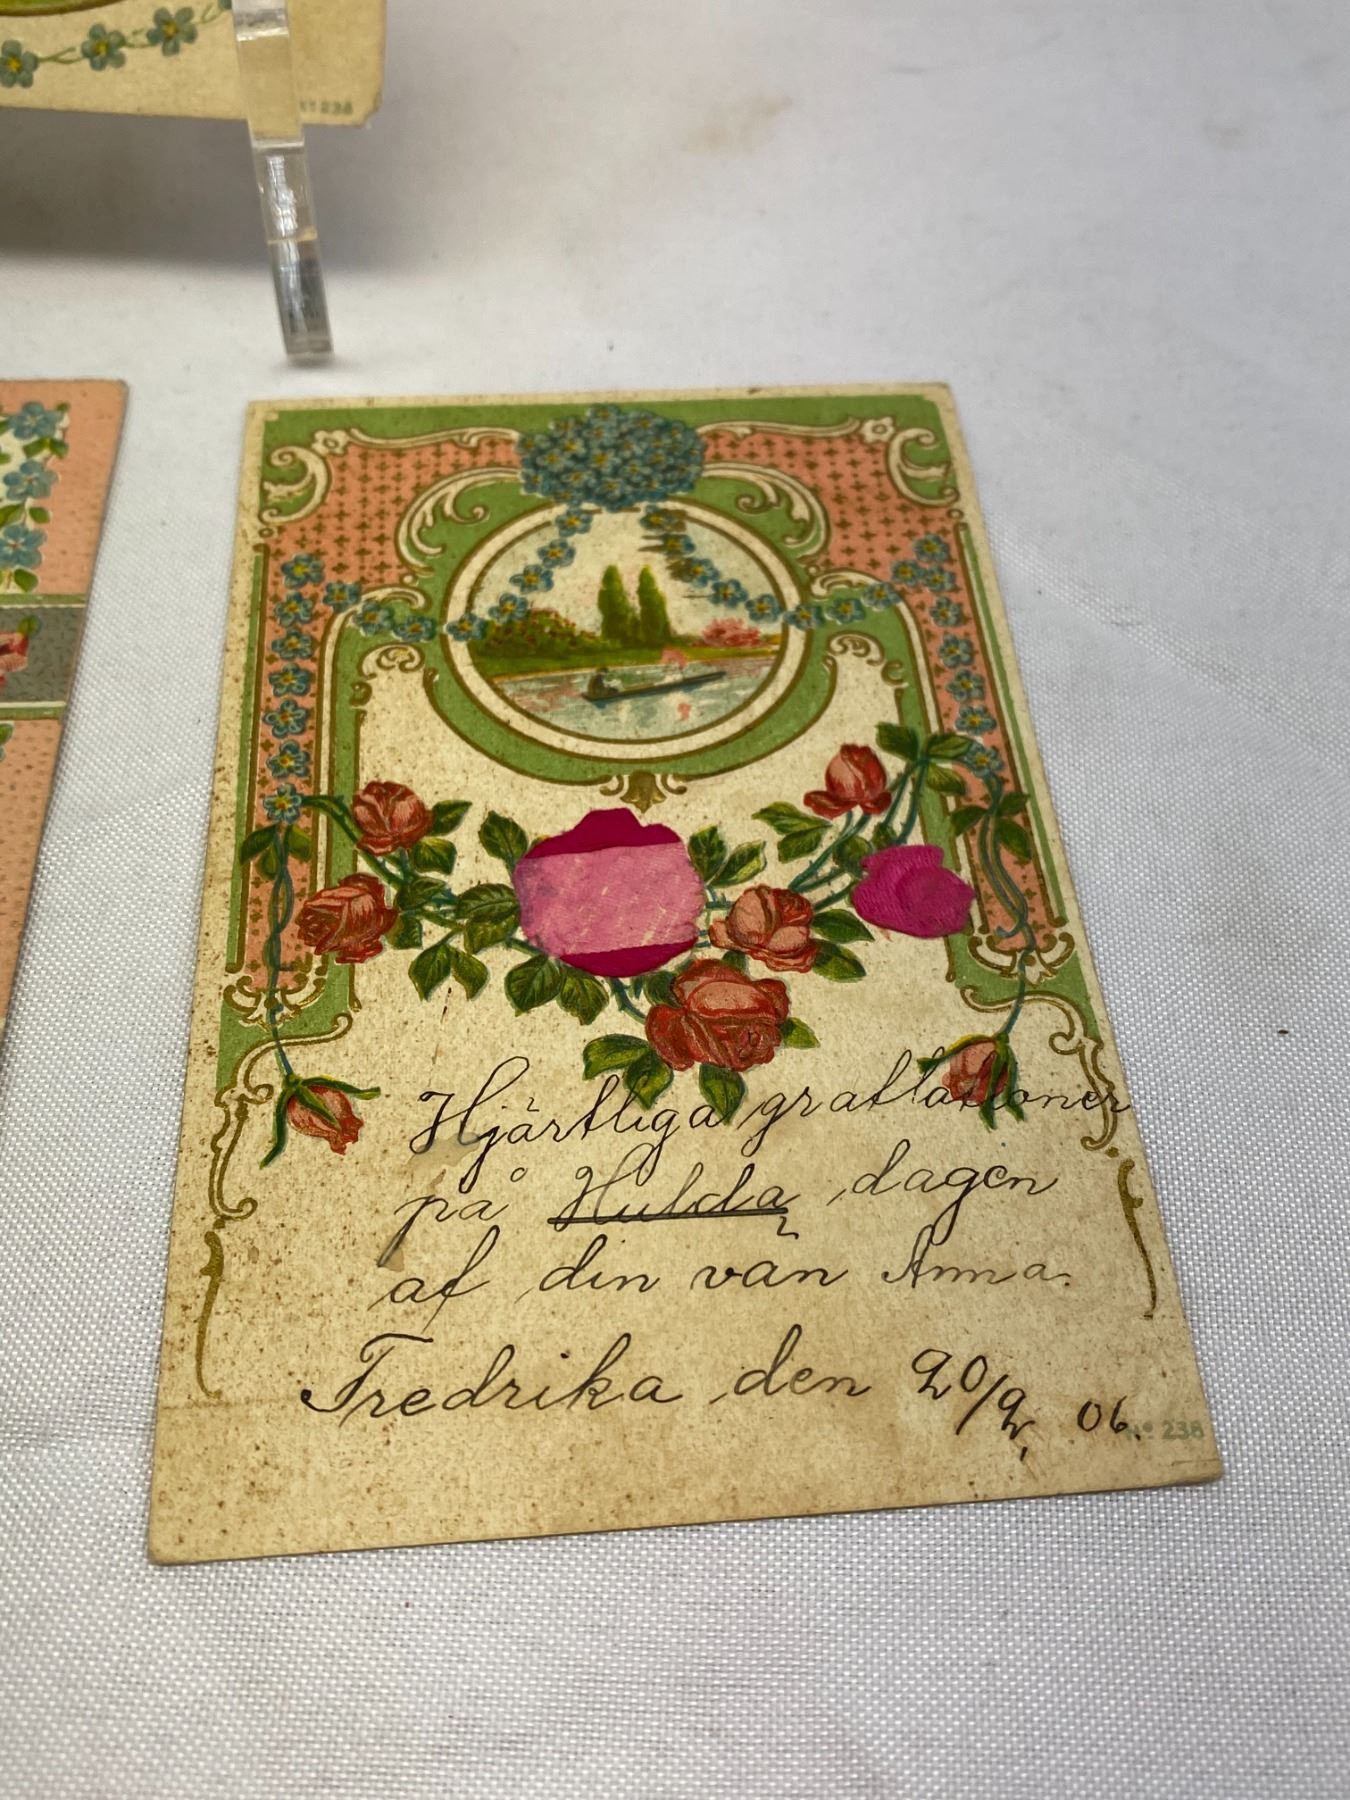 Nº 238
Hjärtliga grattlationer
på Hulda dagen
af din vän Anna.
Fredrika den 20/2, 06.
Nº 238